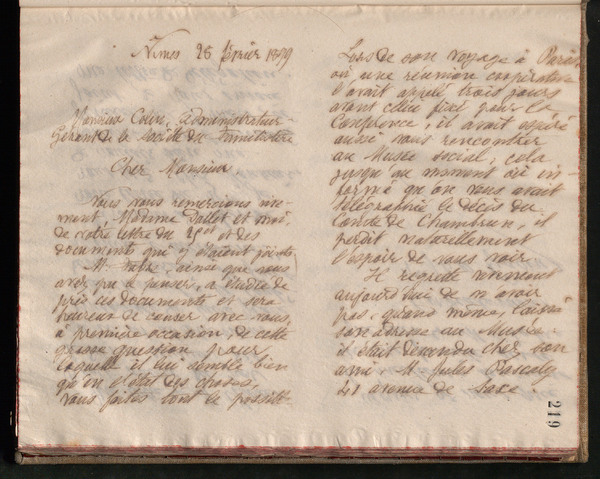 Nîmes 25 février 1899
Monsieur Colin, administrateur-
Gérant de la société du familistère
Cher Monsieur
Nous vous remercions vive-
ment, Madame Dallet et moi,
de votre lettre du et des
documents qui y étaient joints
M. Fabre, ainsi que vous
avez pu le penser, a étudié de
près ces documents et sera
heureux de causer avec vous,
à première occasion, de cette
grosse question pour
laquelle il lui semble bien
qu'en l'état des choses,
vous faites tout le possible
Lors de son voyage à Paris,
où une réunion coopérative
l'avait appelé trois jours
avant celui fixé pour la
Conférence, il avait espéré
aussi vous rencontrer
au Musée social, cela
jusqu'au moment où in-
formé qu'on vous avait
télégraphié le décès du
Comte de Chambrun, il
perdit naturellement
l'espoir de vous voir
Il regrette vivement
aujourd'hui de n'avoir
pas, quand même, laissé
son adresse au Musée:
il était descendu chez son
ami, M. Jules Pascaly
21 avenue de Saxe.
219